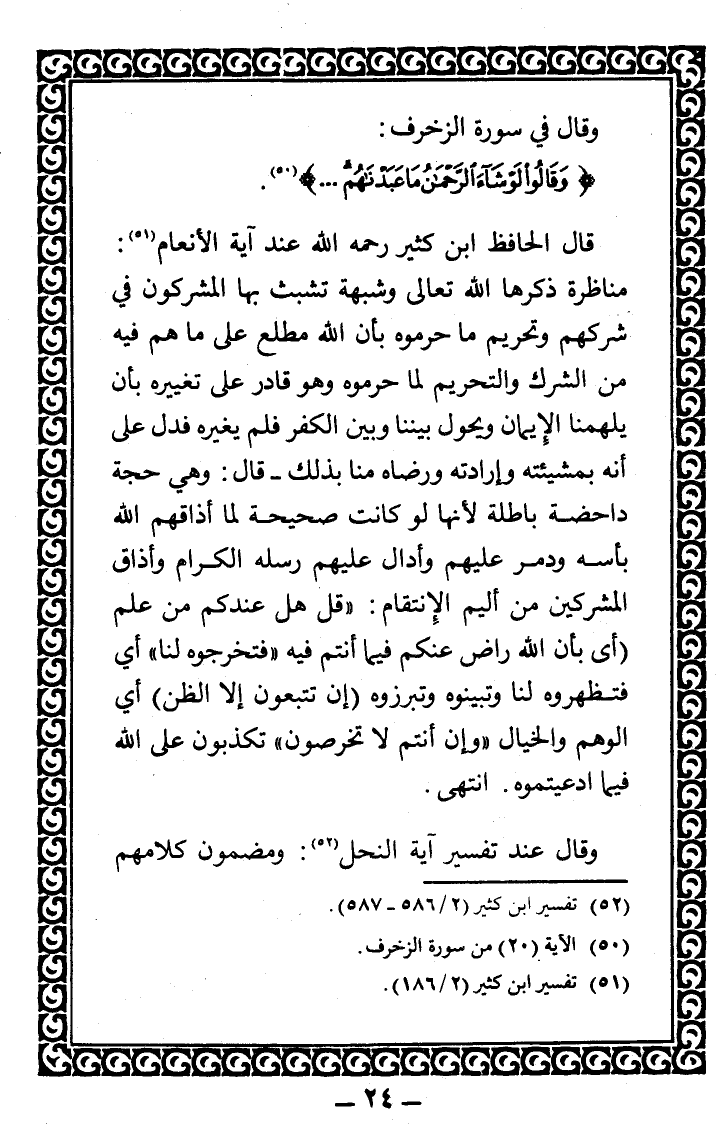 وقال في سورة الزخرف :
﴿ وَقَالُوا۟ لَوْ شَآءَ ٱلرَّحْمَٰنُ مَا عَبَدْنَٰهُم ۗ ... ﴾(٥٠) .
قال الحافظ ابن كثير رحمه الله عند آية الأنعام(٥١) :
مناظرة ذكرها الله تعالى وشبهة تشبث بها المشركون في
شركهم وتحريم ما حرموه بأن الله مطلع على ما هم فيه
من الشرك والتحريم لما حرموه وهو قادر على تغييره بأن
يلهمنا الإيمان ويحول بيننا وبين الكفر فلم يغيره فدل على
أنه بمشيئته وإرادته ورضاه منا بذلك ـ قال : وهي حجة
داحضة باطلة لأنها لو كانت صحيحة لما أذاقهم الله
بأسه ودمر عليهم وأدال عليهم رسله الكرام وأذاق
المشركين من أليم الإنتقام : «قل هل عندكم من علم
(أى بأن الله راض عنكم فيما أنتم فيه «فتخرجوه لنا» أي
فتظهروه لنا وتبينوه وتبرزوه (إن تتبعون إلا الظن) أي
الوهم والخيال «وإن أنتم لا تخرصون» تكذبون على الله
فيما ادعيتموه . انتهى .
وقال عند تفسير آية النحل(٥٢) : ومضمون كلامهم
(٥٢) تفسير ابن كثير (٢/ ٥٨٦ ـ ٥٨٧) .
(٥٠) الآية (٢٠) من سورة الزخرف .
(٥١) تفسير ابن كثير (٢/ ١٨٦) .
ـ ٢٤ ـ